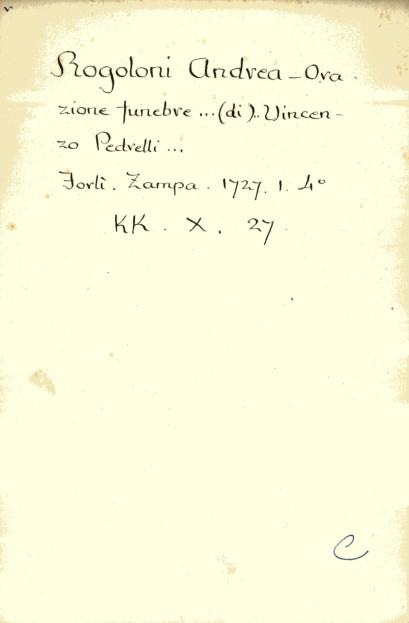 Rogoloni Andrea – Ora
zione funebre ... (di).. Vincen-
zo Pedrelli ...
Forlì. Zampa. 1727. 1. 4°
KK. X. 27
C